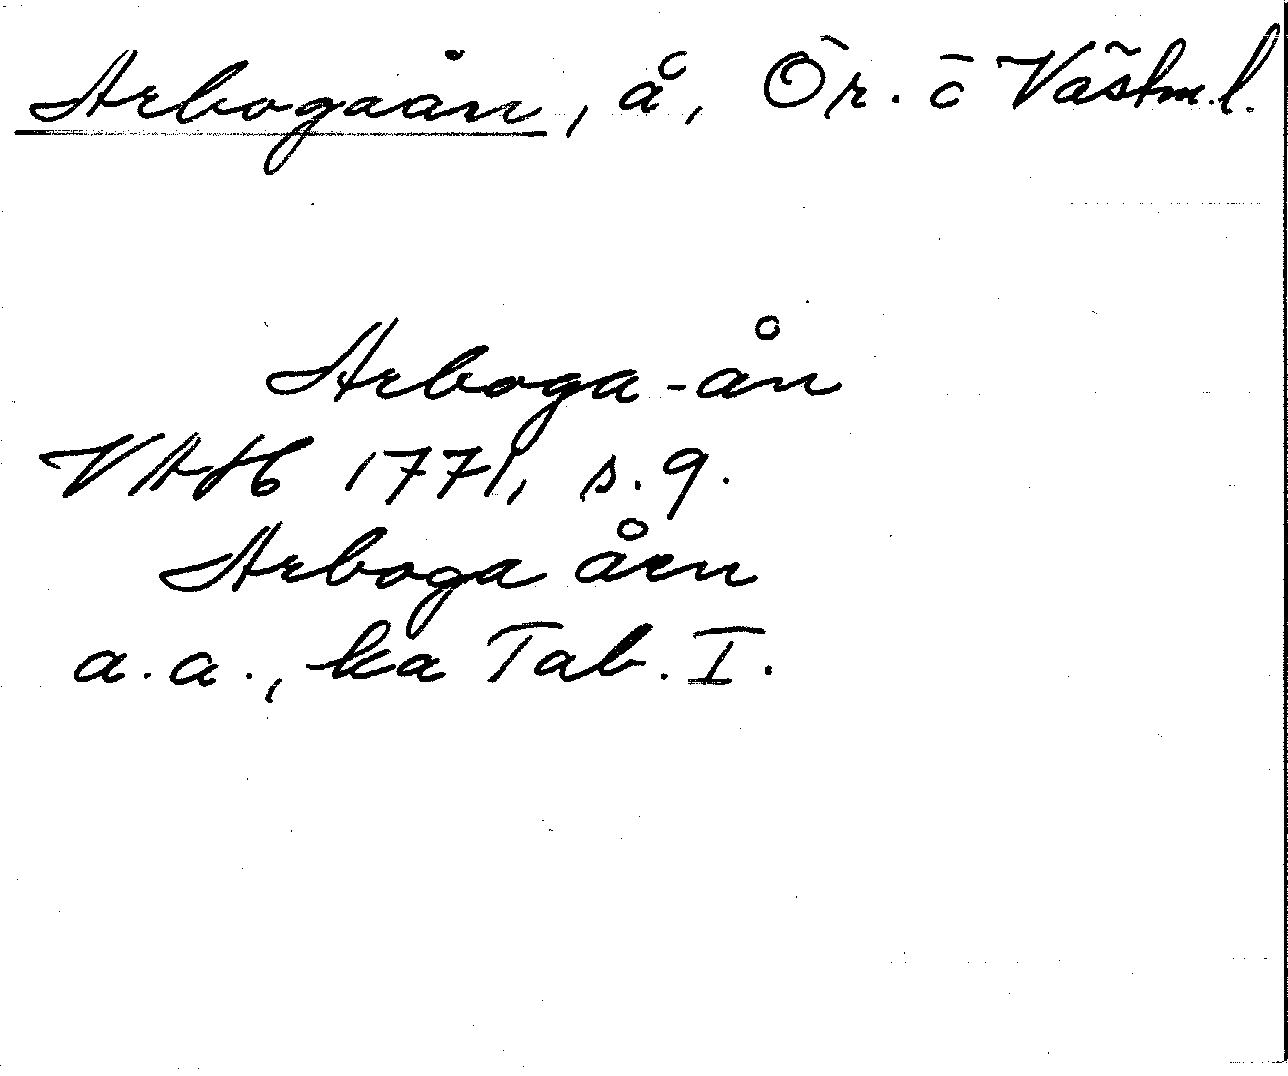 Arbogaån, å, Ör. o Västm.l.
Arboga-ån
VAH 1771, s. 9.
Arboga åen
a.a., ka Tab. I.